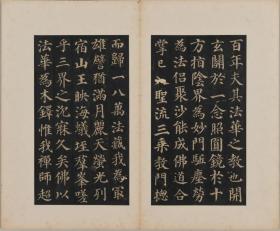 百年夫其法華之教也開
玄關於一念照圓鏡於十
方指陰界為妙門驅塵勞
為法侶聚沙能成佛道合
掌已入聖流三乘教門揔
而歸一八萬法藏我為冣
雄譬猶滿月麗天螢光列
宿山王映海蟻垤羣峯嗟
乎三界之沉寐久矣佛以
法華為木鐸惟我禪師超